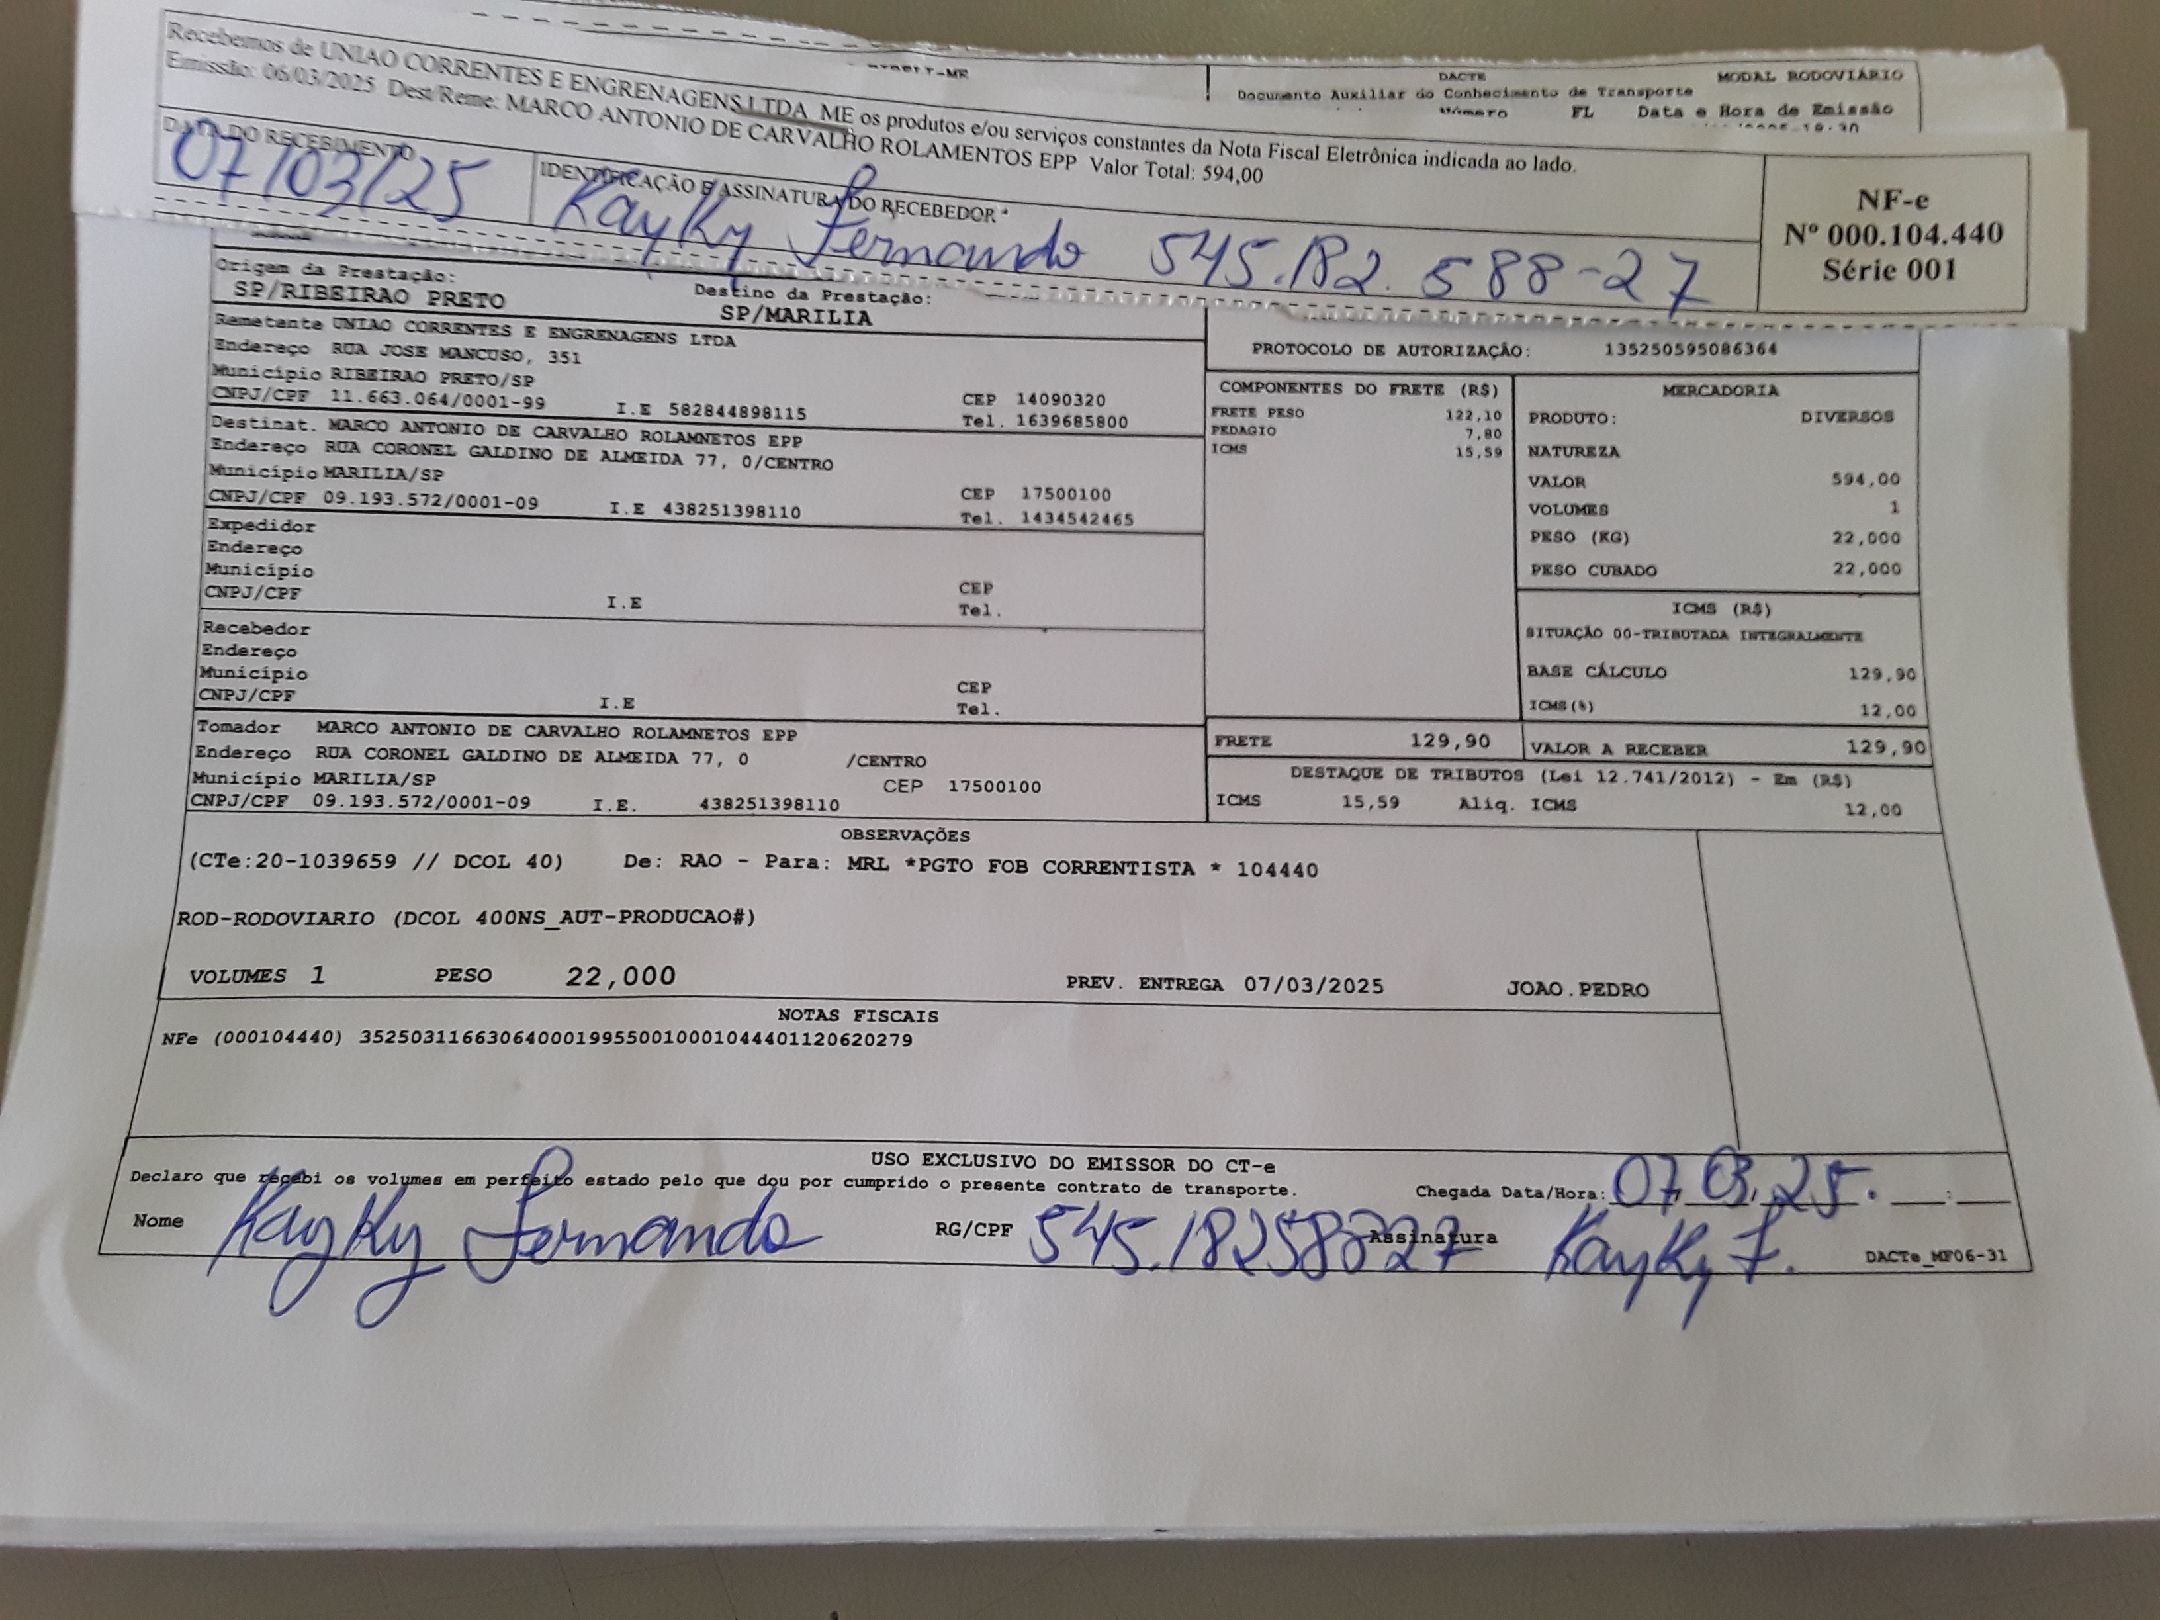 DACTE MODAL RODOVIÁRIO
Documento Auxiliar do Conhecimento de Transporte
Número FL Data e Hora de Emissão
Recebemos de UNIAO CORRENTES E ENGRENAGENS LTDA ME os produtos e/ou serviços constantes da Nota Fiscal Eletrônica indicada ao lado.
Emissão: 06/03/2025 Dest/Reme: MARCO ANTONIO DE CARVALHO ROLAMENTOS EPP Valor Total: 594,00
DATA DO RECEBIMENTO
07/03/25
IDENTIFICAÇÃO E ASSINATURA DO RECEBEDOR
Kayky Fernando 545.182.588-27
NF-e
Nº 000.104.440
Série 001
Origem da Prestação:
SP/RIBEIRAO PRETO
Destino da Prestação:
SP/MARILIA
Remetente UNIAO CORRENTES E ENGRENAGENS LTDA
Endereço RUA JOSE MANCUSO, 351
Município RIBEIRAO PRETO/SP
CEP 14090320
CNPJ/CPF 11.663.064/0001-99 I.E 582844898115 Tel. 1639685800
Destinat. MARCO ANTONIO DE CARVALHO ROLAMNETOS EPP
Endereço RUA CORONEL GALDINO DE ALMEIDA 77, 0/CENTRO
Município MARILIA/SP CEP 17500100
CNPJ/CPF 09.193.572/0001-09 I.E 438251398110 Tel. 1434542465
Expedidor
Endereço
Município CEP
CNPJ/CPF I.E Tel.
Recebedor
Endereço
Município CEP
CNPJ/CPF I.E Tel.
Tomador MARCO ANTONIO DE CARVALHO ROLAMNETOS EPP
Endereço RUA CORONEL GALDINO DE ALMEIDA 77, 0 /CENTRO
Município MARILIA/SP CEP 17500100
CNPJ/CPF 09.193.572/0001-09 I.E. 438251398110
PROTOCOLO DE AUTORIZAÇÃO: 135250595086364
COMPONENTES DO FRETE (R$)
FRETE PESO 122,10
PEDAGIO 7,80
ICMS 15,59
MERCADORIA
PRODUTO: DIVERSOS
NATUREZA
VALOR 594,00
VOLUMES 1
PESO (KG) 22,000
PESO CUBADO 22,000
ICMS (R$)
SITUAÇÃO 00-TRIBUTADA INTEGRALMENTE
BASE CÁLCULO 129,90
ICMS(%) 12,00
FRETE 129,90 VALOR A RECEBER 129,90
DESTAQUE DE TRIBUTOS (Lei 12.741/2012) - Em (R$)
ICMS 15,59 Aliq. ICMS 12,00
OBSERVAÇÕES
(CTe:20-1039659 // DCOL 40) De: RAO - Para: MRL *PGTO FOB CORRENTISTA * 104440
ROD-RODOVIARIO (DCOL 400NS_AUT-PRODUCAO#)
VOLUMES 1 PESO 22,000 PREV. ENTREGA 07/03/2025 JOAO.PEDRO
NOTAS FISCAIS
NFe (000104440) 35250311663064000199550010001044401120620279
USO EXCLUSIVO DO EMISSOR DO CT-e
Declaro que recebi os volumes em perfeito estado pelo que dou por cumprido o presente contrato de transporte. Chegada Data/Hora: 07.03.25. __:__
Nome Kayky Fernando RG/CPF 545.18258827 Assinatura Kayky F.
DACTe_MF06-31